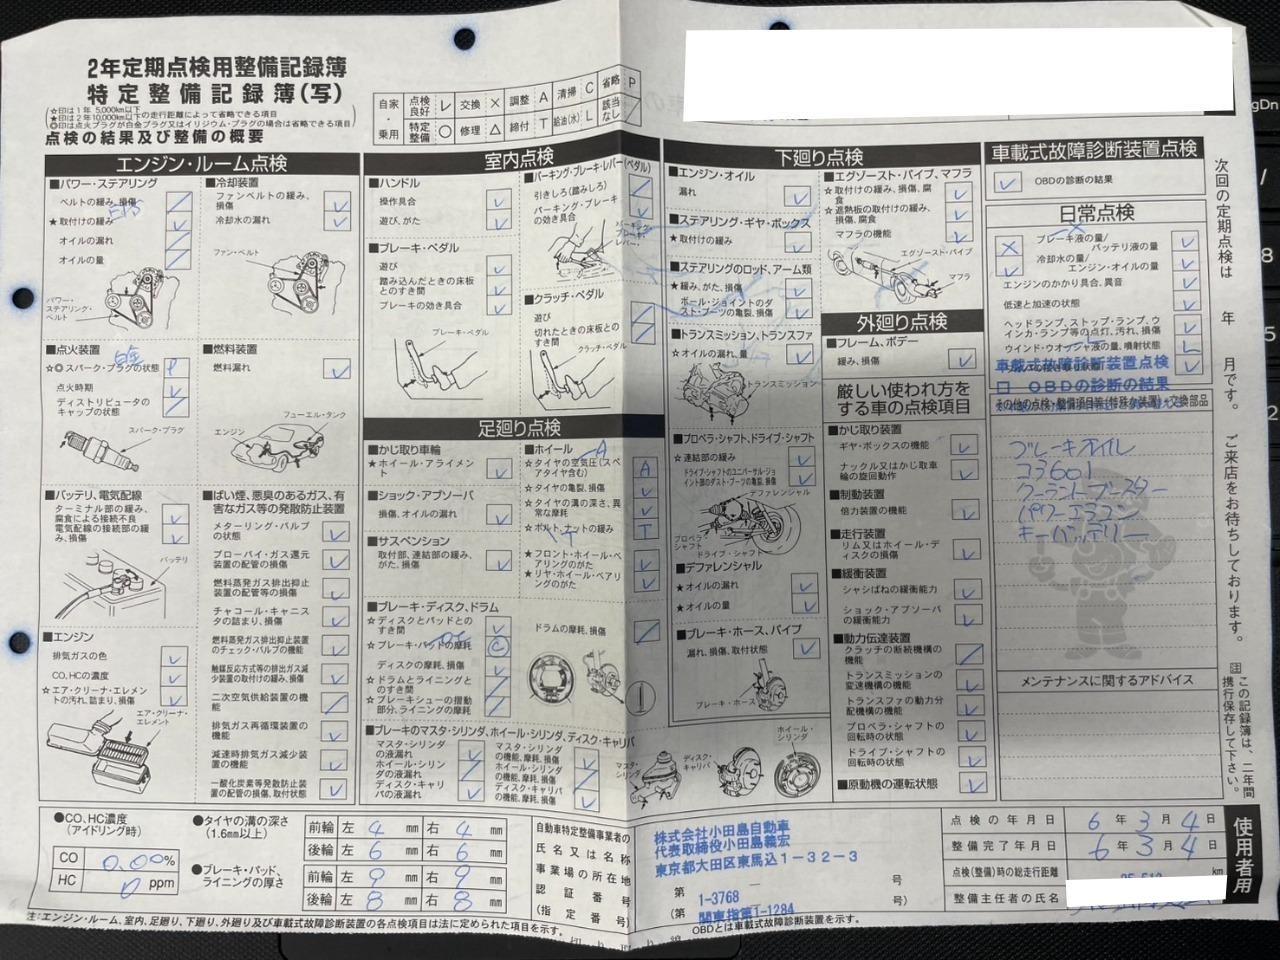 2年定期点検用整備記録簿
特定整備記録簿(写)
☆印は1年 5,000km以下
★印は2年10,000km以下の走行距離によって省略できる項目
◎印は点火プラグが白金プラグ又はイリジウム・プラグの場合は省略できる項目
点検の結果及び整備の概要
自家・乗用
点検良好 レ 交換 × 調整 A 清掃 C 省略 P
特定整備 ○ 修理 △ 締付 T 給油(水) L 該当なし /
エンジン・ルーム点検
■パワー・ステアリング
ベルトの緩み、損傷
★取付けの緩み
オイルの漏れ
オイルの量
パワー・ステアリング・ベルト
■冷却装置
ファンベルトの緩み、損傷
冷却水の漏れ
ファン・ベルト
■点火装置
白金
☆◎スパーク・プラグの状態 P
点火時期
ディストリビュータのキャップの状態
スパーク・プラグ
■燃料装置
燃料漏れ
フューエル・タンク
エンジン
■バッテリ、電気配線
ターミナル部の緩み、腐食による接続不良
電気配線の接続部の緩み、損傷
バッテリ
■ばい煙、悪臭のあるガス、有害なガス等の発散防止装置
メターリング・バルブの状態
ブローバイ・ガス還元装置の配管の損傷
燃料蒸発ガス排出抑止装置の配管等の損傷
チャコール・キャニスタの詰まり、損傷
燃料蒸発ガス排出抑止装置のチェック・バルブの機能
触媒反応方式等の排出ガス減少装置の取付けの緩み、損傷
二次空気供給装置の機能
排気ガス再循環装置の機能
減速時排気ガス減少装置の機能
一酸化炭素等発散防止装置の配管の損傷、取付状態
■エンジン
排気ガスの色
CO、HCの濃度
☆エア・クリーナ・エレメントの汚れ、詰まり、損傷
エア・クリーナ・エレメント
室内点検
■ハンドル
操作具合
遊び、がた
■ブレーキ・ペダル
遊び
踏み込んだときの床板とのすき間
ブレーキの効き具合
ブレーキ・ペダル
■パーキング・ブレーキ・レバー(ペダル)
引きしろ(踏みしろ)
パーキング・ブレーキの効き具合
パーキング・ブレーキ・レバー
■クラッチ・ペダル
遊び
切れたときの床板とのすき間
クラッチ・ペダル
足廻り点検
■かじ取り車輪
★ホイール・アライメント
■ショック・アブソーバ
損傷、オイルの漏れ
■サスペンション
取付部、連結部の緩み、がた、損傷
■ホイール
☆タイヤの空気圧(スペアタイヤ含む) A
☆タイヤの亀裂、損傷
☆タイヤの溝の深さ、異常な摩耗
☆ボルト、ナットの緩み T
★フロント・ホイール・ベアリングのがた
★リヤ・ホイール・ベアリングのがた
■ブレーキ・ディスク、ドラム
☆ディスクとパッドとのすき間
☆ブレーキ・パッドの摩耗
ディスクの摩耗、損傷
☆ドラムとライニングとのすき間
☆ブレーキシューの摺動部分、ライニングの摩耗
ドラムの摩耗、損傷
■ブレーキのマスタ・シリンダ、ホイール・シリンダ、ディスク・キャリパ
マスタ・シリンダの液漏れ
ホイール・シリンダの液漏れ
ディスク・キャリパの液漏れ
マスタ・シリンダの機能、摩耗、損傷
ホイール・シリンダの機能、摩耗、損傷
ディスク・キャリパの機能、摩耗、損傷
マスタ・シリンダ
ディスク・キャリパ
ホイール・シリンダ
下廻り点検
■エンジン・オイル
漏れ
■ステアリング・ギヤ・ボックス
★取付けの緩み
■ステアリングのロッド、アーム類
★緩み、がた、損傷
ボール・ジョイントのダスト・ブーツの亀裂、損傷
■トランスミッション、トランスファ
☆オイルの漏れ、量
トランスミッション
■プロペラ・シャフト、ドライブ・シャフト
☆連結部の緩み
ドライブ・シャフトのユニバーサル・ジョイント部のダスト・ブーツの亀裂、損傷
デファレンシャル
プロペラ・シャフト
ドライブ・シャフト
■デファレンシャル
★オイルの漏れ
★オイルの量
■ブレーキ・ホース、パイプ
漏れ、損傷、取付状態
ブレーキ・ホース
■エグゾースト・パイプ、マフラ
☆取付けの緩み、損傷、腐食
☆遮熱板の取付けの緩み、損傷、腐食
マフラの機能
エグゾースト・パイプ
マフラ
外廻り点検
■フレーム、ボデー
緩み、損傷
厳しい使われ方をする車の点検項目
■かじ取り装置
ギヤ・ボックスの機能
ナックル又はかじ取車輪の旋回動作
■制動装置
倍力装置の機能
■走行装置
リム又はホイール・ディスクの損傷
■緩衝装置
シャシばねの緩衝能力
ショック・アブソーバの緩衝能力
■動力伝達装置
クラッチの断続機構の機能
トランスミッションの変速機構の機能
トランスファの動力分配機構の機能
プロペラ・シャフトの回転時の状態
ドライブ・シャフトの回転時の状態
■原動機の運転状態
車載式故障診断装置点検
OBDの診断の結果
日常点検
ブレーキ液の量/バッテリ液の量
冷却水の量/エンジン・オイルの量
エンジンのかかり具合、異音
低速と加速の状態
ヘッドランプ、ストップ・ランプ、ウインカ・ランプ等の点灯、汚れ、損傷
ウインド・ウオッシャ液の量、噴射状態
車載式故障診断装置点検
□ OBDの診断の結果
その他の点検・整備項目等(特殊な装置)・交換部品
ブレーキオイル
コ3601
クーラントブースター
パワーエアコン
キーバッテリー
メンテナンスに関するアドバイス
次回の定期点検は 年 月です。 ご来店をお待ちしております。
注 この記録簿は、二年間携行保存して下さい。
●CO、HC濃度(アイドリング時)
CO 0.00%
HC 0 ppm
●タイヤの溝の深さ(1.6mm以上)
前輪 左 4 mm 右 4 mm
後輪 左 6 mm 右 6 mm
●ブレーキ・パッド、ライニングの厚さ
前輪 左 9 mm 右 9 mm
後輪 左 8 mm 右 8 mm
自動車特定整備事業者の氏名又は名称
事業場の所在地
認証番号
(指定番号)
株式会社小田島自動車
代表取締役小田島義宏
東京都大田区東馬込1-32-3
第 1-3768 号
(第 関東指第1-1284 号)
点検の年月日 6年3月4日
整備完了年月日 6年3月4日
点検(整備)時の総走行距離 km
整備主任者の氏名
使用者用
注:エンジン・ルーム、室内、足廻り、下廻り、外廻り及び車載式故障診断装置の各点検項目は法に定められた項目を示す。
OBDとは車載式故障診断装置を示す。
切り取り線